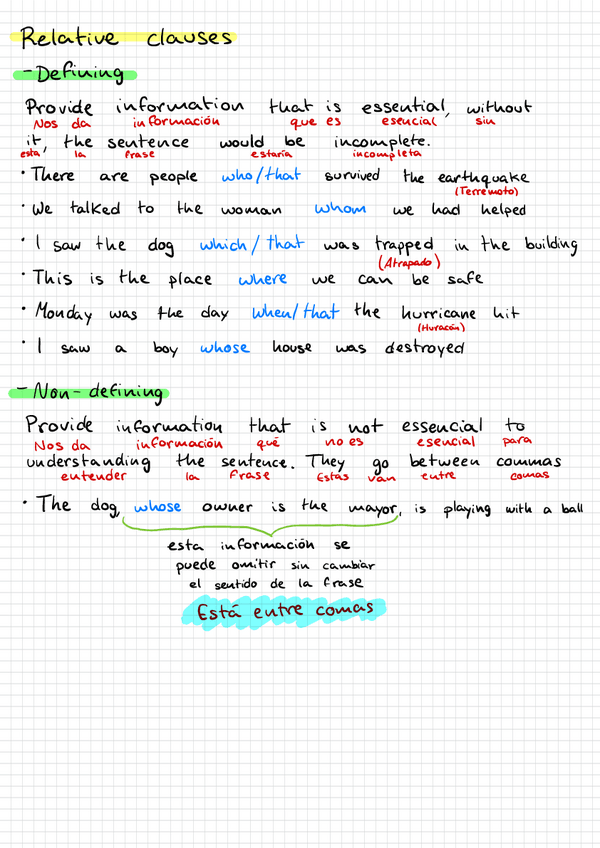 Relative clauses
- Defining
Provide information that is essential, without
Nos da información que es esencial sin
it, the sentence would be incomplete.
esta la frase estaría incompleta
· There are people who/that survived the earthquake
(Terremoto)
· We talked to the woman whom we had helped
· I saw the dog which/that was trapped in the building
(Atrapado)
· This is the place where we can be safe
· Monday was the day when/that the hurricane hit
(Huracán)
· I saw a boy whose house was destroyed
- Non-defining
Provide information that is not essencial to
Nos da información qué no es esencial para
understanding the sentence. They go between commas
entender la frase Estas van entre comas
· The dog, whose owner is the mayor, is playing with a ball
esta información se
puede omitir sin cambiar
el sentido de la frase
Está entre comas